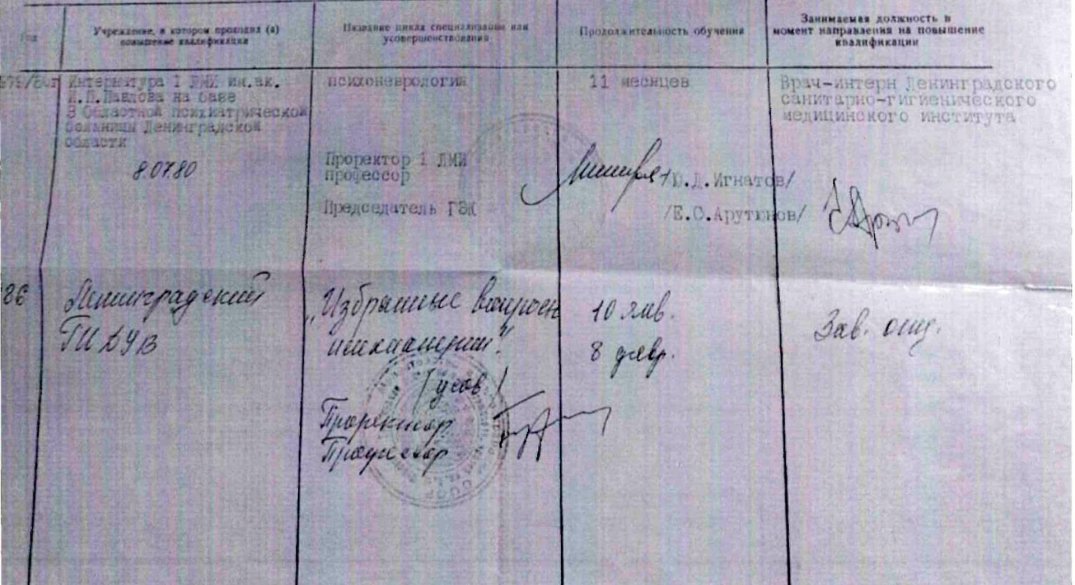 Учреждение, в котором проходил (а)
повышение квалификации
Название цикла специализации или
усовершенствования
Продолжительность обучения
Занимаемая должность в
момент направления на повышение
квалификации
Интернатура I ЛМИ им.ак.
И.П.Павлова на базе
3 Областной психиатрической
больницы Ленинградской
области
8.07.80
психоневрология
11 месяцев
Врач-интерн Ленинградского
санитарно-гигиенического
медицинского института
Проректор I ЛМИ
профессор
/Ю.Д.Игнатов/
Председатель ГЭК
/Е.С.Арутюнов/
86
Ленинградский
ГИДУВ
„Избранные вопросы
психиатрии".
/усов/
10 янв.
8 февр.
Зав. отд.
Проректор
Профессор